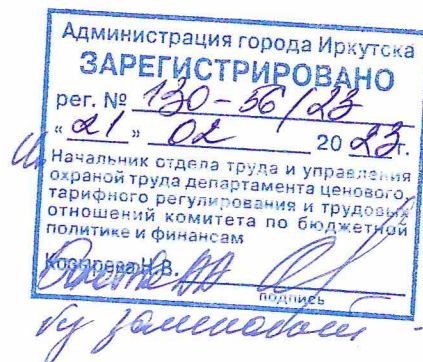 Администрация города Иркутска
ЗАРЕГИСТРИРОВАНО
рег. № 130-56/23
"21" 02 2023г.
Начальник отдела труда и управления
охраной труда департамента ценового,
тарифного регулирования и трудовых
отношений комитета по бюджетной
политике и финансам
Козырева Н.В.
подпись